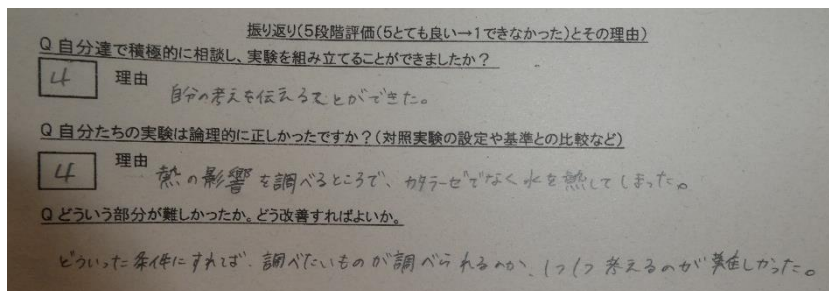 振り返り(5段階評価(5とても良い→1できなかった)とその理由)
Q 自分達で積極的に相談し、実験を組み立てることができましたか？
4 理由
自分の考えを伝えることができた。
Q 自分たちの実験は論理的に正しかったですか？(対照実験の設定や基準との比較など)
4 理由
熱の影響を調べるところで、カタラーゼでなく水を熱してしまった。
Q どういう部分が難しかったか。どう改善すればよいか。
どういった条件にすれば、調べたいものが調べられるのか、1つ1つ考えるのが難しかった。